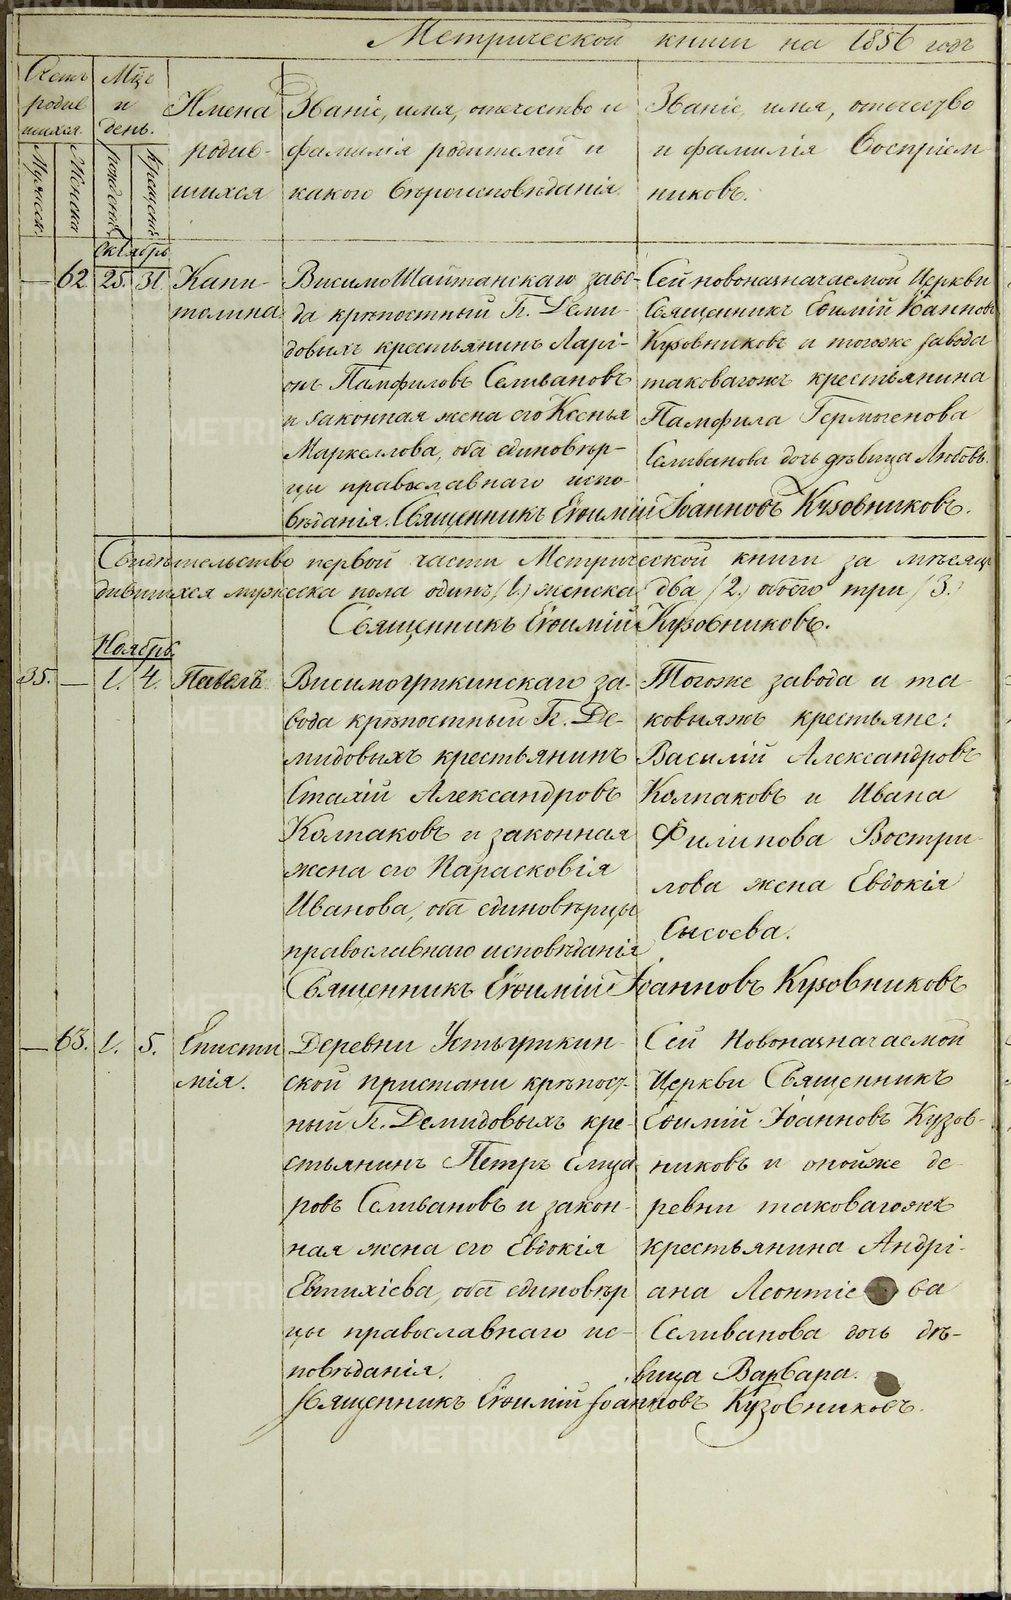 Метрической книги на 1856 годъ
Счетъ родив шихся.
Мужеск.
Женска
Мцъ и день.
рожденія
крещенія
Имена родив- шихся
Званіе, имя, отечество и
фамилія родителей и
какого вѣроисповѣданія.
Званіе, имя, отечество
и фамилія Воспріем
никовъ.
октябрь
— 62 25. 31. Капи-
толина
ВисимоШайтанскаго заво-
да крѣпостный Г. Деми-
довыхъ крестьянинъ Ларі-
онъ Памфиловъ Селивановъ
и законная жена его Ксенья
Маркеллова, оба единовѣр-
цы православнаго испо-
вѣданія.
Сей новоназначаемой Церкви
Священникъ Евѳимій Іоанновъ
Кузовниковъ и тогоже завода
таковагожъ крестьянина
Памфила Гермогенова
Селиванова дочь дѣвица Любовь.
Священникъ Евѳимій Іоанновъ Кузовниковъ.
Свидѣтельство первой части Метрической книги за мѣсяцъ
дившихся мужеска пола одинъ /1./ женска два /2./ обоего три /3./
Священникъ Евѳимій Кузовниковъ.
Ноябрь.
35. — 1. 4. Павелъ
Висимоуткинскаго за-
вода крѣпостный Г. Де-
мидовыхъ крестьянинъ
Стахій Александровъ
Колпаковъ и законная
жена его Парасковія
Иванова, оба единовѣрцы
православнаго исповѣданія
Тогоже завода и та-
ковыяжъ крестьяне:
Василій Александровъ
Колпаковъ и Ивана
Филипова Востри-
лова жена Евдокія
Сысоева.
Священникъ Евѳимій Іоанновъ Кузовниковъ
— 63. 1. 5. Еписти
мія.
Деревни Устьуткин-
ской пристани крѣпост-
ный Г. Демидовыхъ кре-
стьянинъ Петръ
ровъ Селивановъ и закон-
ная жена его Евдокія
Евтихіева, оба единовѣр
цы православнаго ис-
повѣданія.
Сей Новоназначаемой
Церкви Священникъ
Евѳимій Іоанновъ Кузов-
никовъ и онойже де-
ревни таковагожъ
крестьянина Андрі-
ана Леонтіева
Селиванова дочь дѣ-
вица Варвара.
Священникъ Евѳимій Іоанновъ Кузовниковъ.